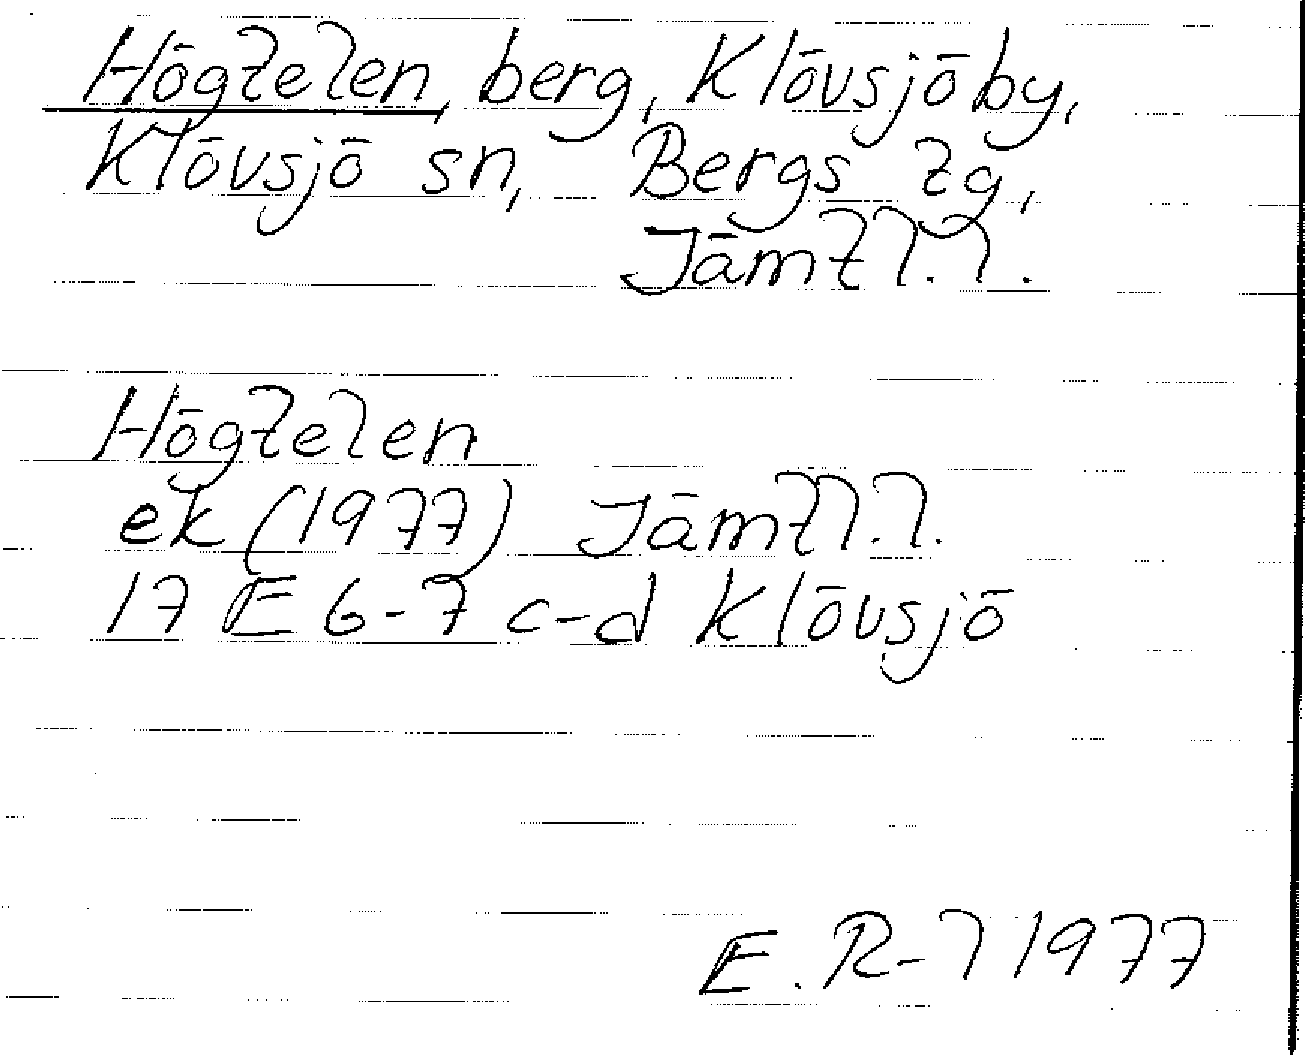 Högtelen, berg, Klövsjö by,
Klövsjö sn, Bergs tg,
Jämtl.l.
Högtelen
ek (1977) Jämtl.l.
17 E 6-7 c-d Klövsjö
E.R-l 1977